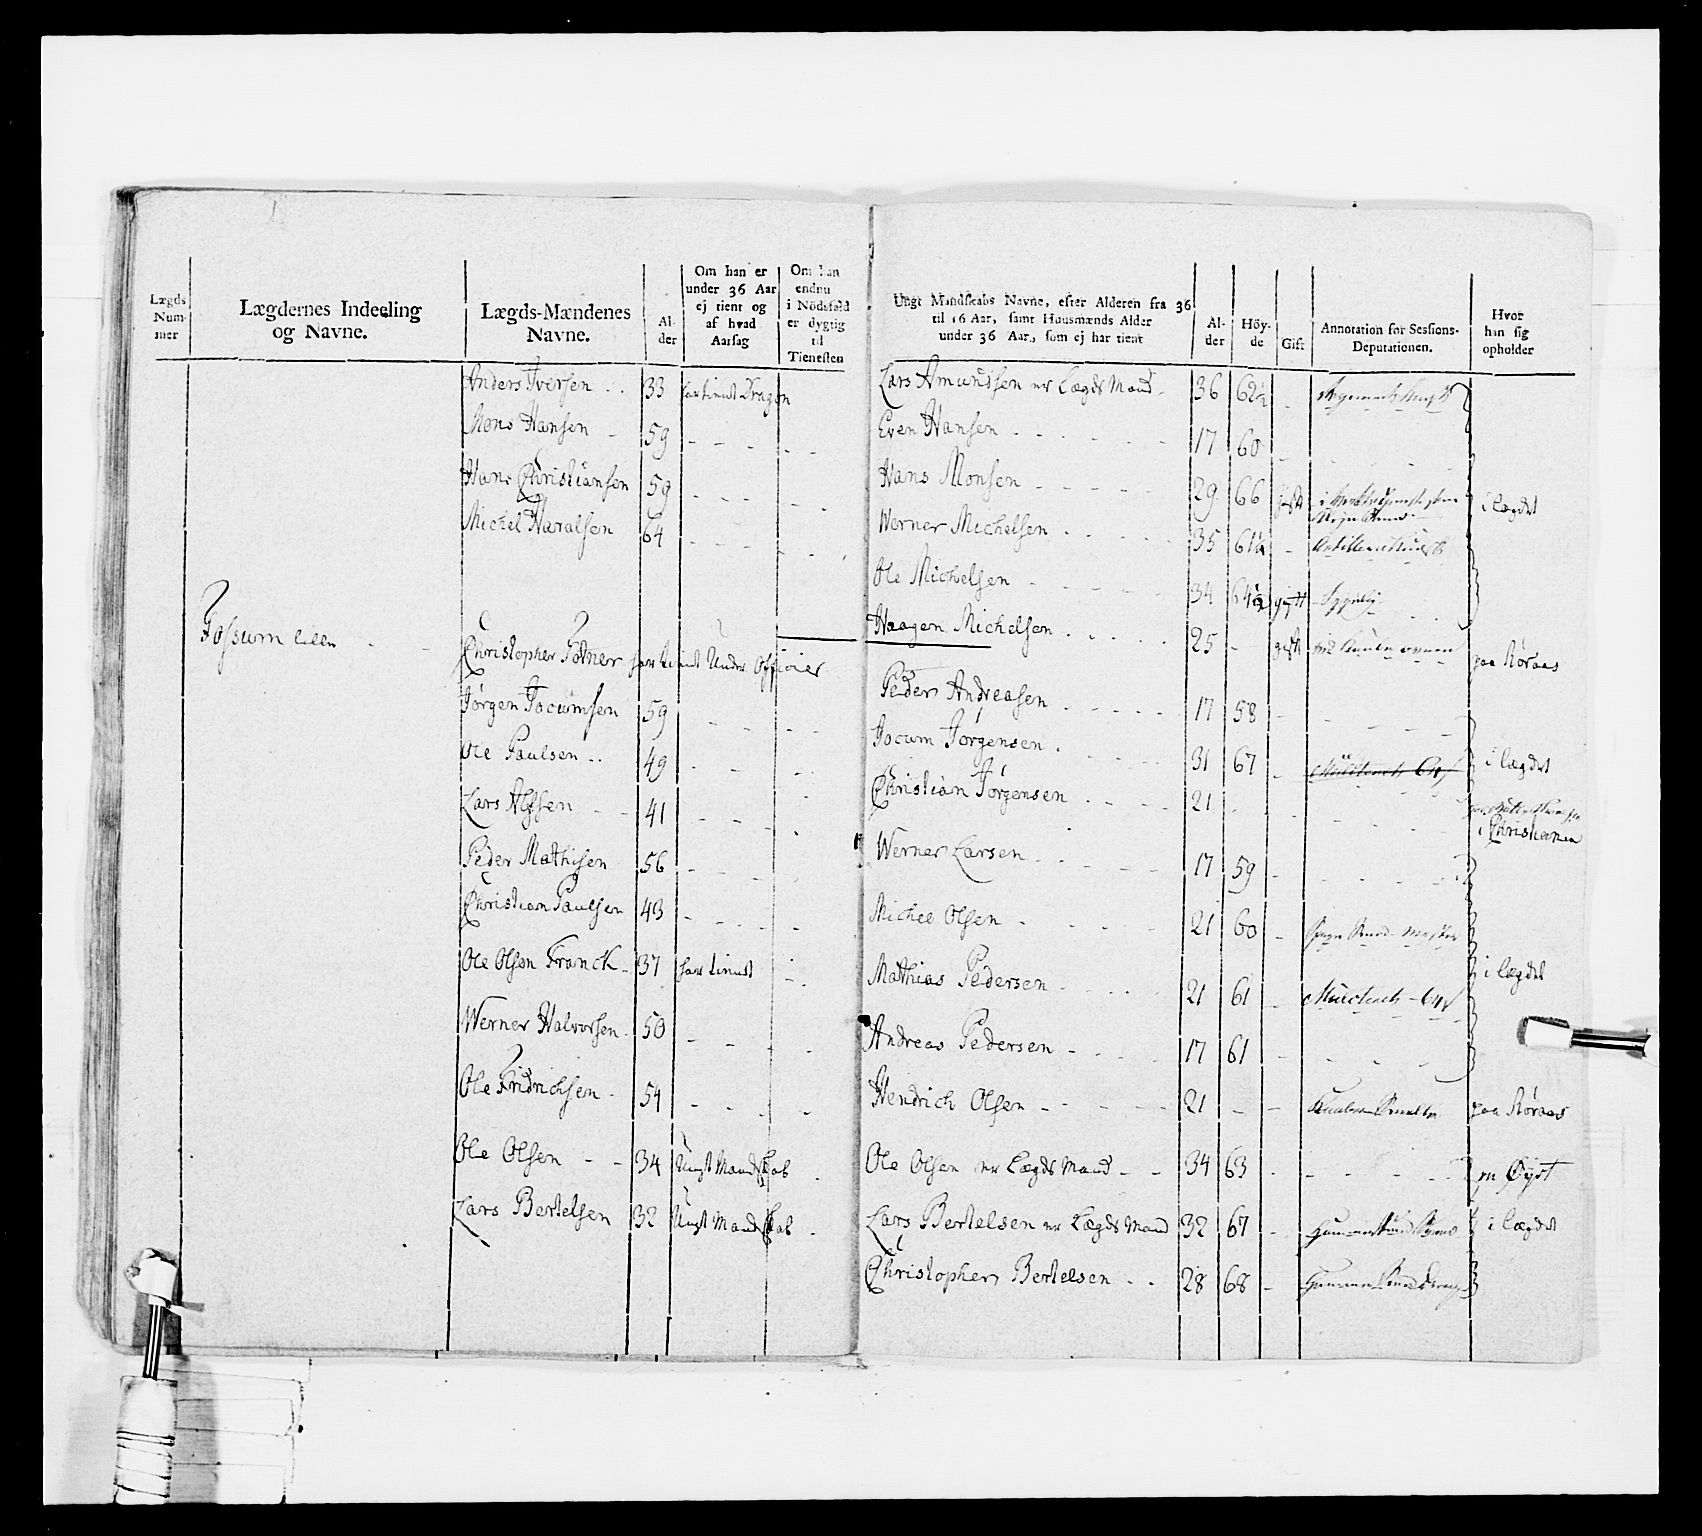 Lægds Num- mer
Lægdernes Indeeling og Navne.
Lægds-Mændenes Navne.
Al- der
Om han er under 36 Aar ej tient og af hvad Aarsag
Om han endnu i Nödsfald er dygtig til Tienesten
Ungt Mandskabs Navne, efter Alderen fra 36 til 16 Aar, samt Huusmænds Alder under 36 Aar, som ej har tient
Al- der
Höy- de
Gift
Annotation for Sessions- Deputationen.
Hvor han sig opholder
Anders Iversen 33 har tient Dragon
Mons Hansen 59
Hans Christiansen 59
Michel Haralsen 64
Fossum lille
Christopher har tient Under Officier
Jørgen Jocumsen 59
Ole Paulsen 49
Lars Alfsen 41
Peder Mathisen 56
Christian Paulsen 43
Ole Olsen Franck 37 har tient
Werner Halvorsen 50
Ole Fridrichsen 54
Ole Olsen 34 Ungt Mandskab
Lars Bertelsen 32 Ungt Mandskab
Lars Amundsen er Lægds Mand 36 62½
Even Hansen 17 60
Hans Monsen 29 66 gift i Lægdet
Werner Michelsen 35 61½
Ole Michelsen 34 64½ gift
Haagen Michelsen 25 gift paa Røraas
Peder Andreasen 17 58
Jocum Jørgensen 31 67 i Lægdet
Christian Jørgensen 21 i Christiania
Werner Larsen 17 59
Michel Olsen 21 60
Mathias Pedersen 21 61 i Lægdet
Andreas Pedersen 17 61
Hendrich Olsen 21 paa Røraas
Ole Olsen er Lægds Mand 34 63
Lars Bertelsen er Lægds Mand 32 67 i Lægdet
Christopher Bertelsen 28 68